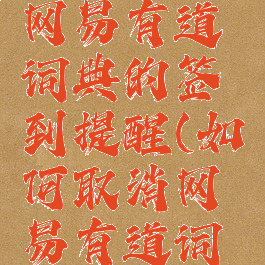 网易有道
词典的签
到提醒(如
何取消网
易有道词